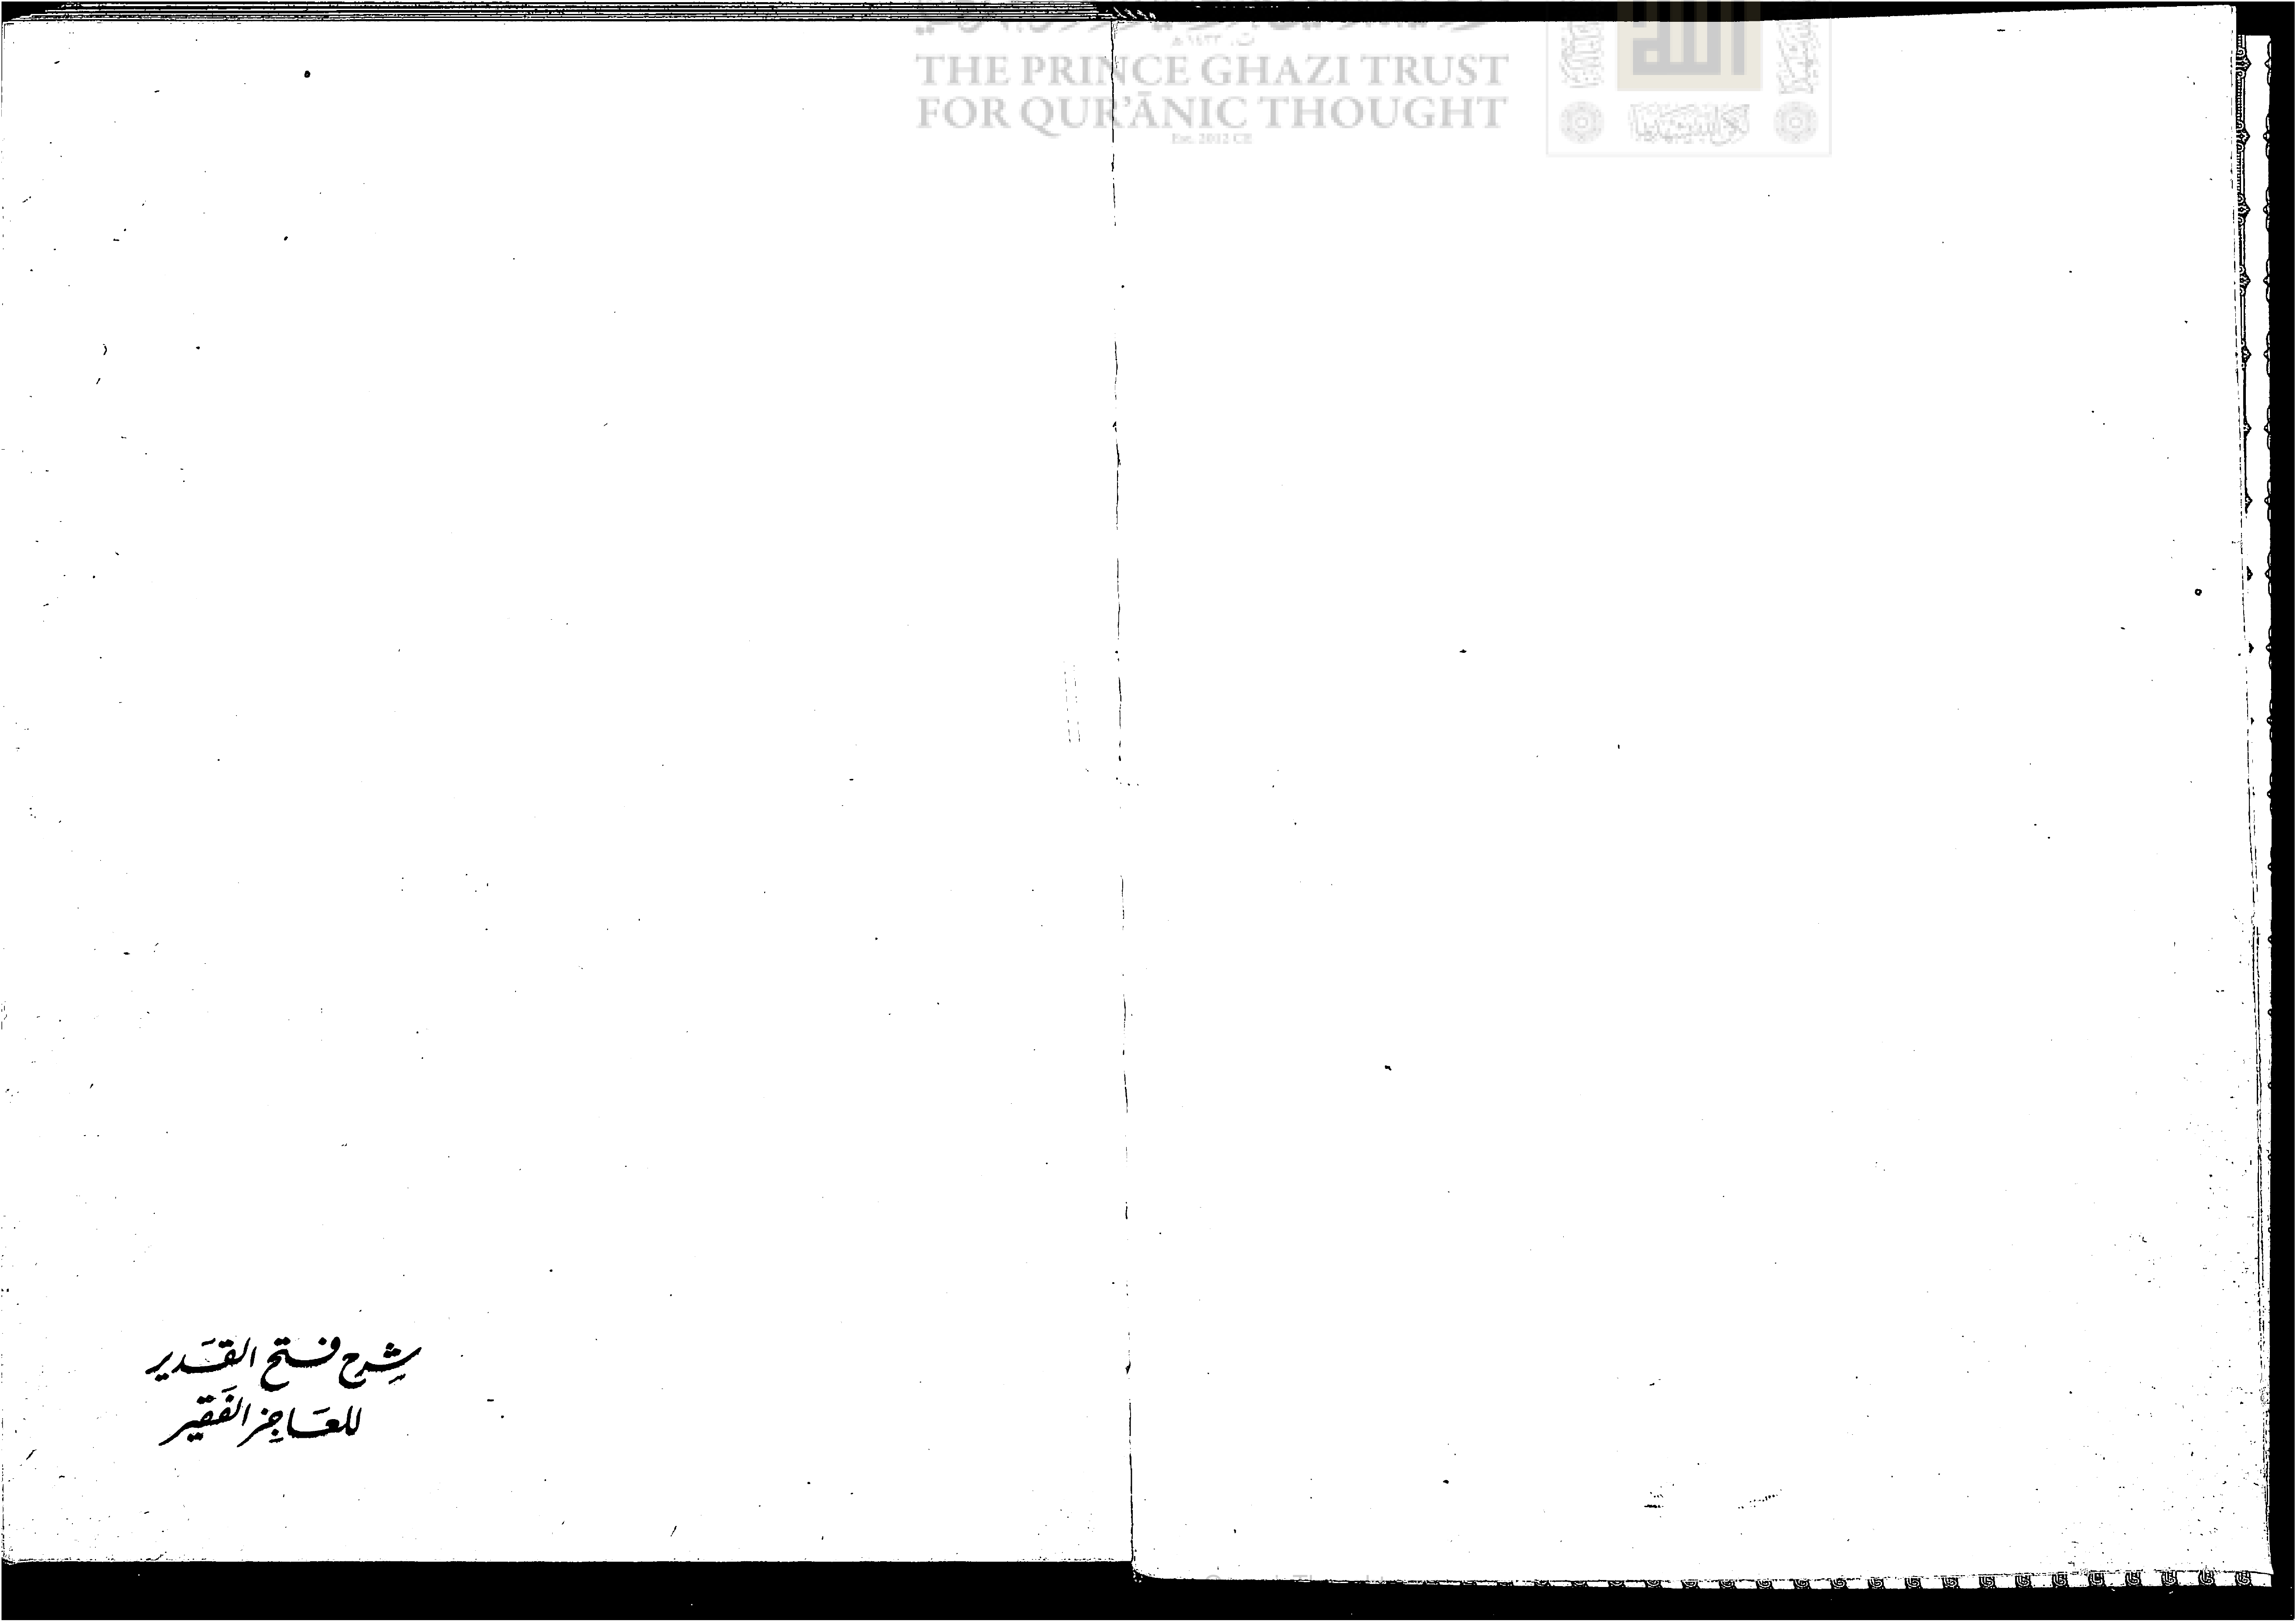 THE PRINCE GHAZI TRUST
FOR QUR'ĀNIC THOUGHT
Est. 2012 CE
شرح فتح القدير
للعاجز الفقير